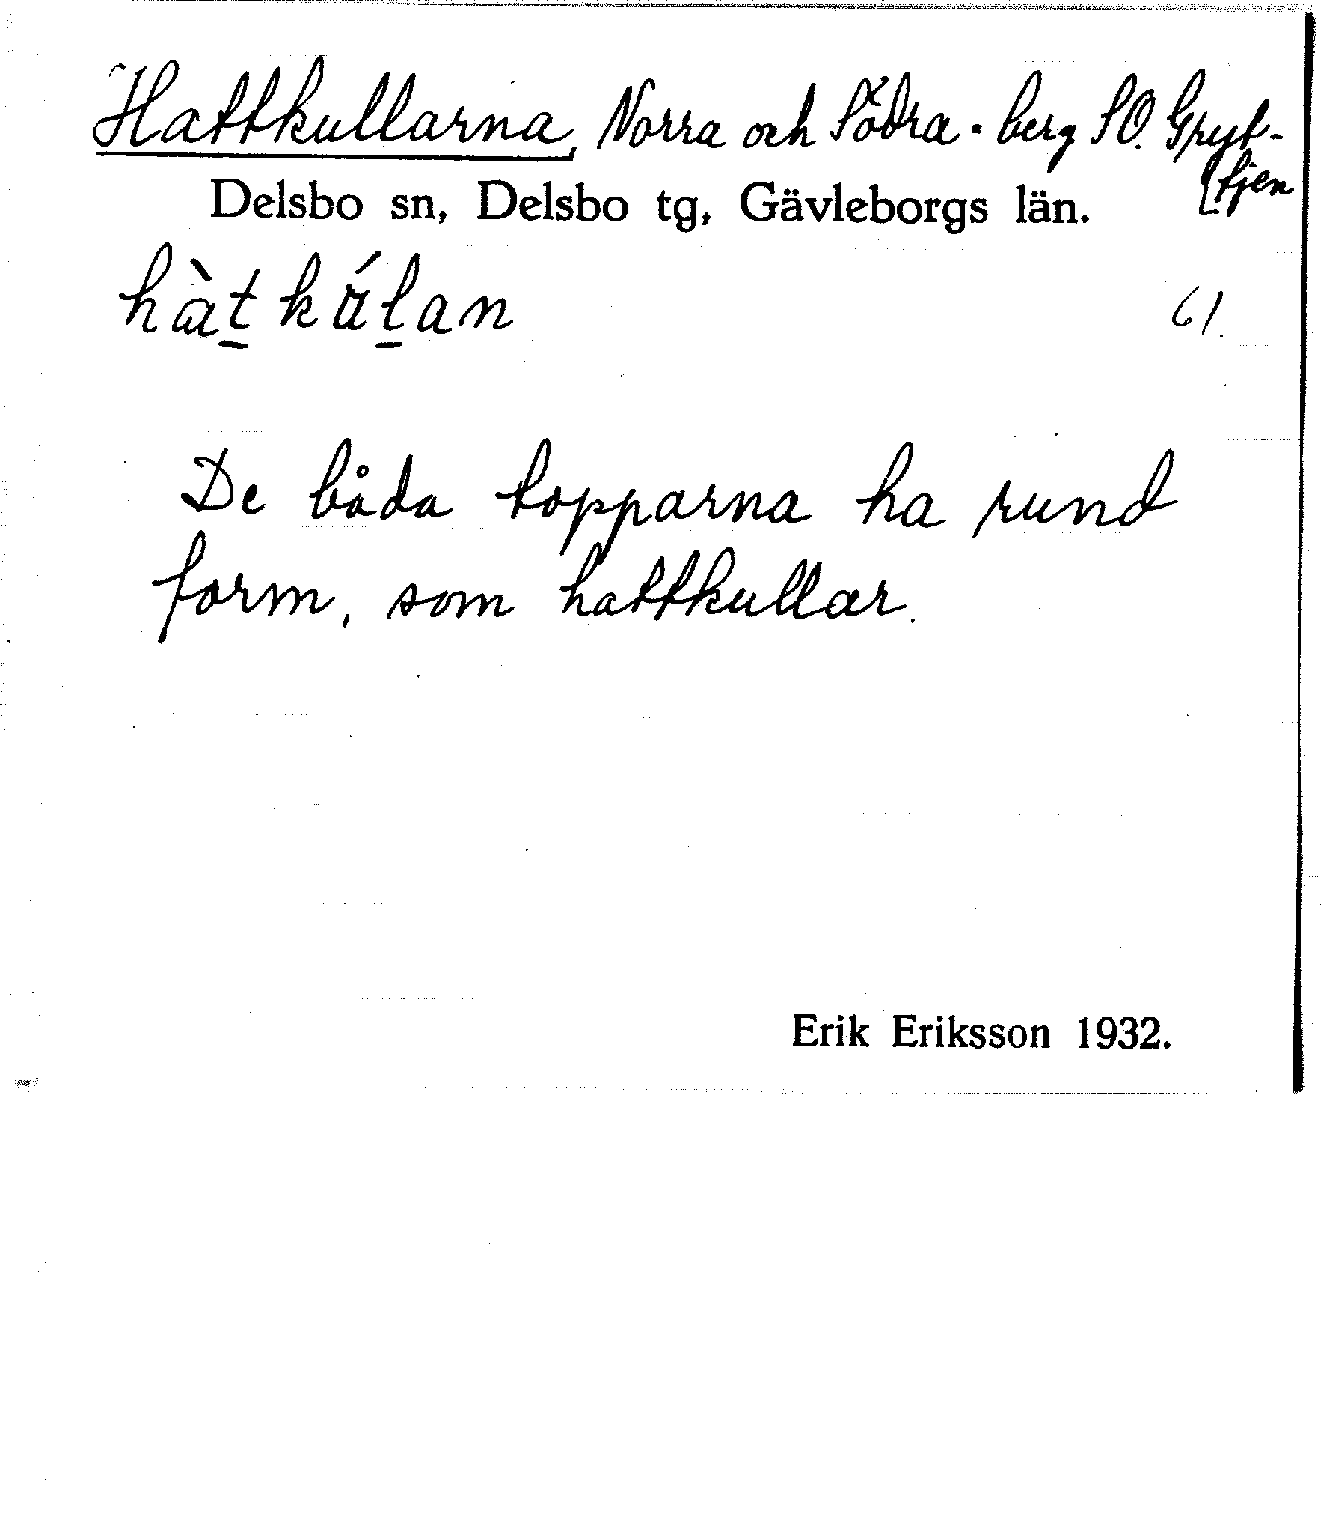 Hattkullarna, Norra och Södra - berg SO. Gryt-
[tjen
Delsbo sn, Delsbo tg, Gävleborgs län.
hàt̲ kúl̲an
61.
De båda topparna ha rund
form, som hattkullar.
Erik Eriksson 1932.